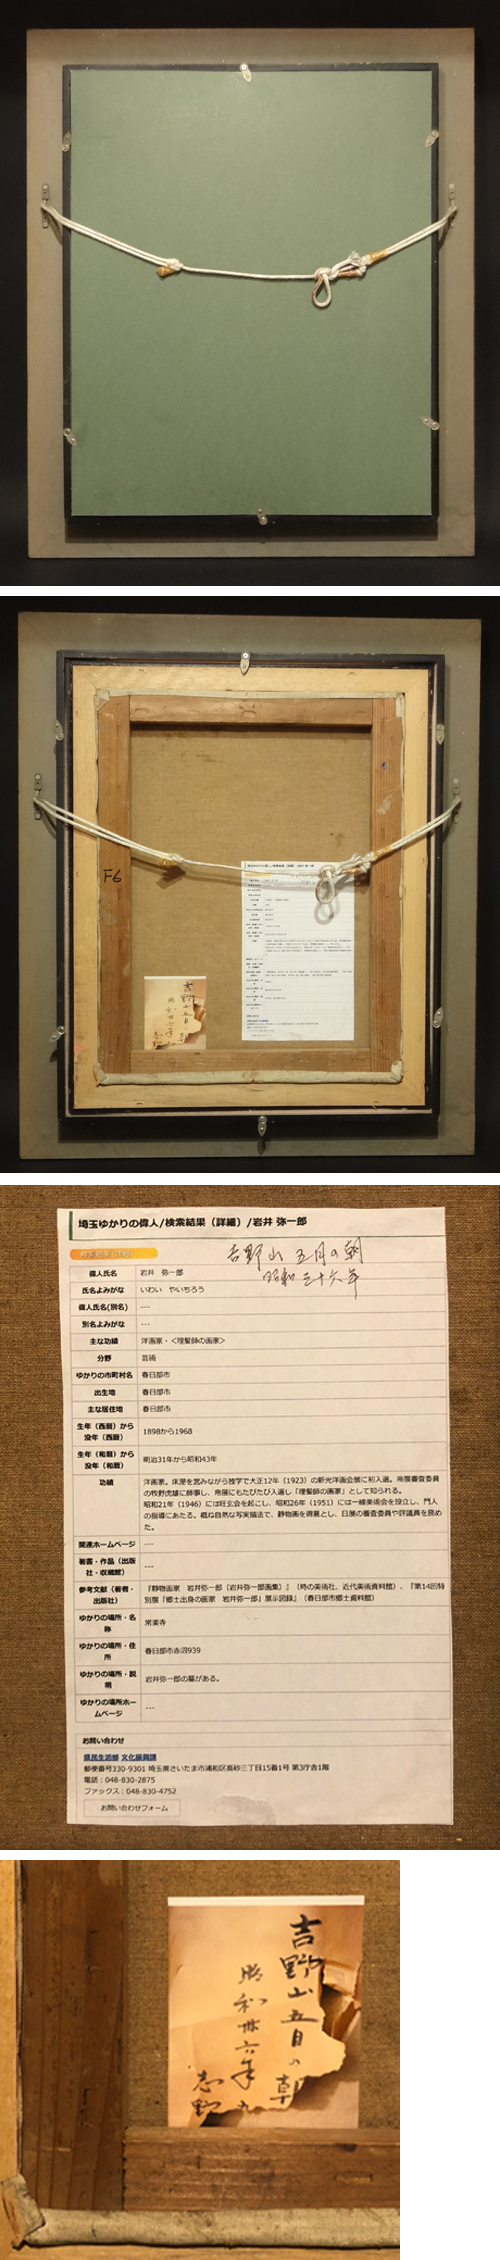 F6
埼玉ゆかりの偉人/検索結果（詳細）/岩井 弥一郎
検索結果（詳細）
吉野山 五月の朝
昭和三十六年
偉人氏名 岩井 弥一郎
氏名よみがな いわい やいちろう
偉人氏名(別名) ---
別名よみがな ---
主な功績 洋画家・<理髪師の画家>
分野 芸術
ゆかりの市町村名 春日部市
出生地 春日部市
主な居住地 春日部市
生年（西暦）から没年（西暦） 1898から1968
生年（和暦）から没年（和暦） 明治31年から昭和43年
功績 洋画家。床屋を営みながら独学で大正12年（1923）の新光洋画会展に初入選。帝展審査委員
の牧野虎雄に師事し、帝展にもたびたび入選し「理髪師の画家」として知られる。
昭和21年（1946）には旺玄会を起こし、昭和26年（1951）には一線美術会を設立し、門人
の指導にあたる。概ね自然な写実描法で、静物画を得意とし、日展の審査委員や評議員を務め
た。
関連ホームページ ---
著書・作品（出版社・収蔵館） ---
参考文献（著者・出版社） 『静物画家 岩井弥一郎（岩井弥一郎画集）』（時の美術社、近代美術資料館）、『第14回特
別展「郷土出身の画家 岩井弥一郎」展示図録』（春日部市郷土資料館）
ゆかりの場所・名称 常楽寺
ゆかりの場所・住所 春日部市赤沼939
ゆかりの場所・説明 岩井弥一郎の墓がある。
ゆかりの場所ホームページ ---
お問い合わせ
県民生活部 文化振興課
郵便番号330-9301 埼玉県さいたま市浦和区高砂三丁目15番1号 第3庁舎1階
電話：048-830-2875
ファックス：048-830-4752
お問い合わせフォーム
吉野山五月の朝
昭和卅六年
志野